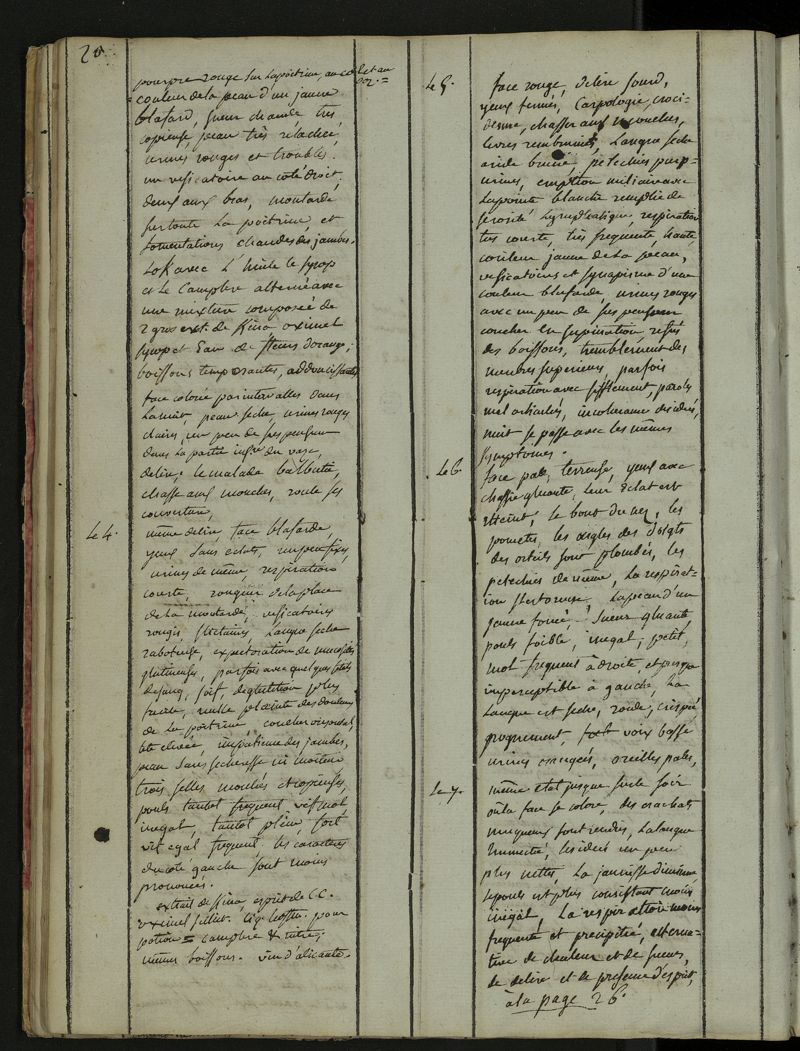 20.
pourpre rouge sur la poitrine, au col et au
couleur de la peau d'un jaune
blafard, sueur chaude très
copieuse, peau très relachée,
urines rouges et troubles.
un vesicatoire au coté droit,
deux aux bras, moutarde
sur toute la poitrine, et
fomentations chaudes des jambes.
Lok avec l'huile le syrop
et le Camphre alterné avec
une mixture composée de
2 gros ext. de Kina oximel
syrop et Eau de fleurs d'orange;
boissons temperantes, addoucissantes
face colorée par intervalles dans
la nuit, peau seche, urines rouges
claires, un peu de suspensum
dans la partie infre du vase,
delire, le malade balbutie,
chasse aux mouches, roule ses
couvertures,
Le 4. même delire, face blafarde,
yeux sans eclats, un peu fixes,
urines de même, respiration
courte, rougeur de la place
de la moutarde, vesicatoires
rougis, langue seche
raboteuse, expectoration de mucosités
glutineuses, parfois avec quelques filets
de sang, soif, deglutition plus
facile, nulle plainte des douleurs
de la poitrine, coucher
tête elevée, impatience des jambes,
peau sans secheresse ni moiteur
trois selles moulées et copieuses,
pouls tantot frequent vif mol
inegal, tantot plein, fort
vif egal frequent. les caracteres
du coté gauche sont moins
prononcés.
extrait de Kina, esprit de C.C.
oximel scillit. liqr hoffm. pour
potion = camphre & nitre;
mêmes boissons. vin d'alicante.
Le 5. face rouge, delire sourd,
yeux fermés, Carpologie, croci-
disme, chasser aux mouches,
levres rembrunies, Langue seche
aride brune, petechies purp-
urines, eruption miliaire avec
la pointe blanche remplie de
serosité Lymphatique, respiration
tres courte, très frequente, haute,
couleur jaune de la peau,
vesicatoires et synapisme d'une
couleur blafarde, urines rouges
avec un peu de suspensum
coucher en supination refus
des boissons, tremblement des
membres superieurs, parfois
respiration avec sifflement, parole
mal articulée, incoherence des idées,
nuit se passe avec les mêmes
symptomes.
Le 6 face pale, terreuse, yeux avec
chassie gluante, leur eclat est
eteint, le bout du nez, les
pomettes, les ongles des doigts
des orteils sont plombés, les
petechies de même, La respirat-
ion stertoreuse. La peau d'un
jaune foncé, sueur gluante,
pouls foible, inegal, petit,
mol frequent à droite, et presque
imperceptible à gauche, la
Langue est seche, roide,
grognement, voix basse
urines oreilles pales,
Le 7. même etat jusque sur le soir
où la face se colore, des crachats
muqueux sont rendus, La langue
humectée, les idées un peu
plus nettes. La jaunisse diminue
le pouls est plus consistant moins
inégal, La respiration moins
frequente et precipitée, alterna-
tive de chaleur et de sueurs,
de delire et de presence d'esprit,
à la page 26.